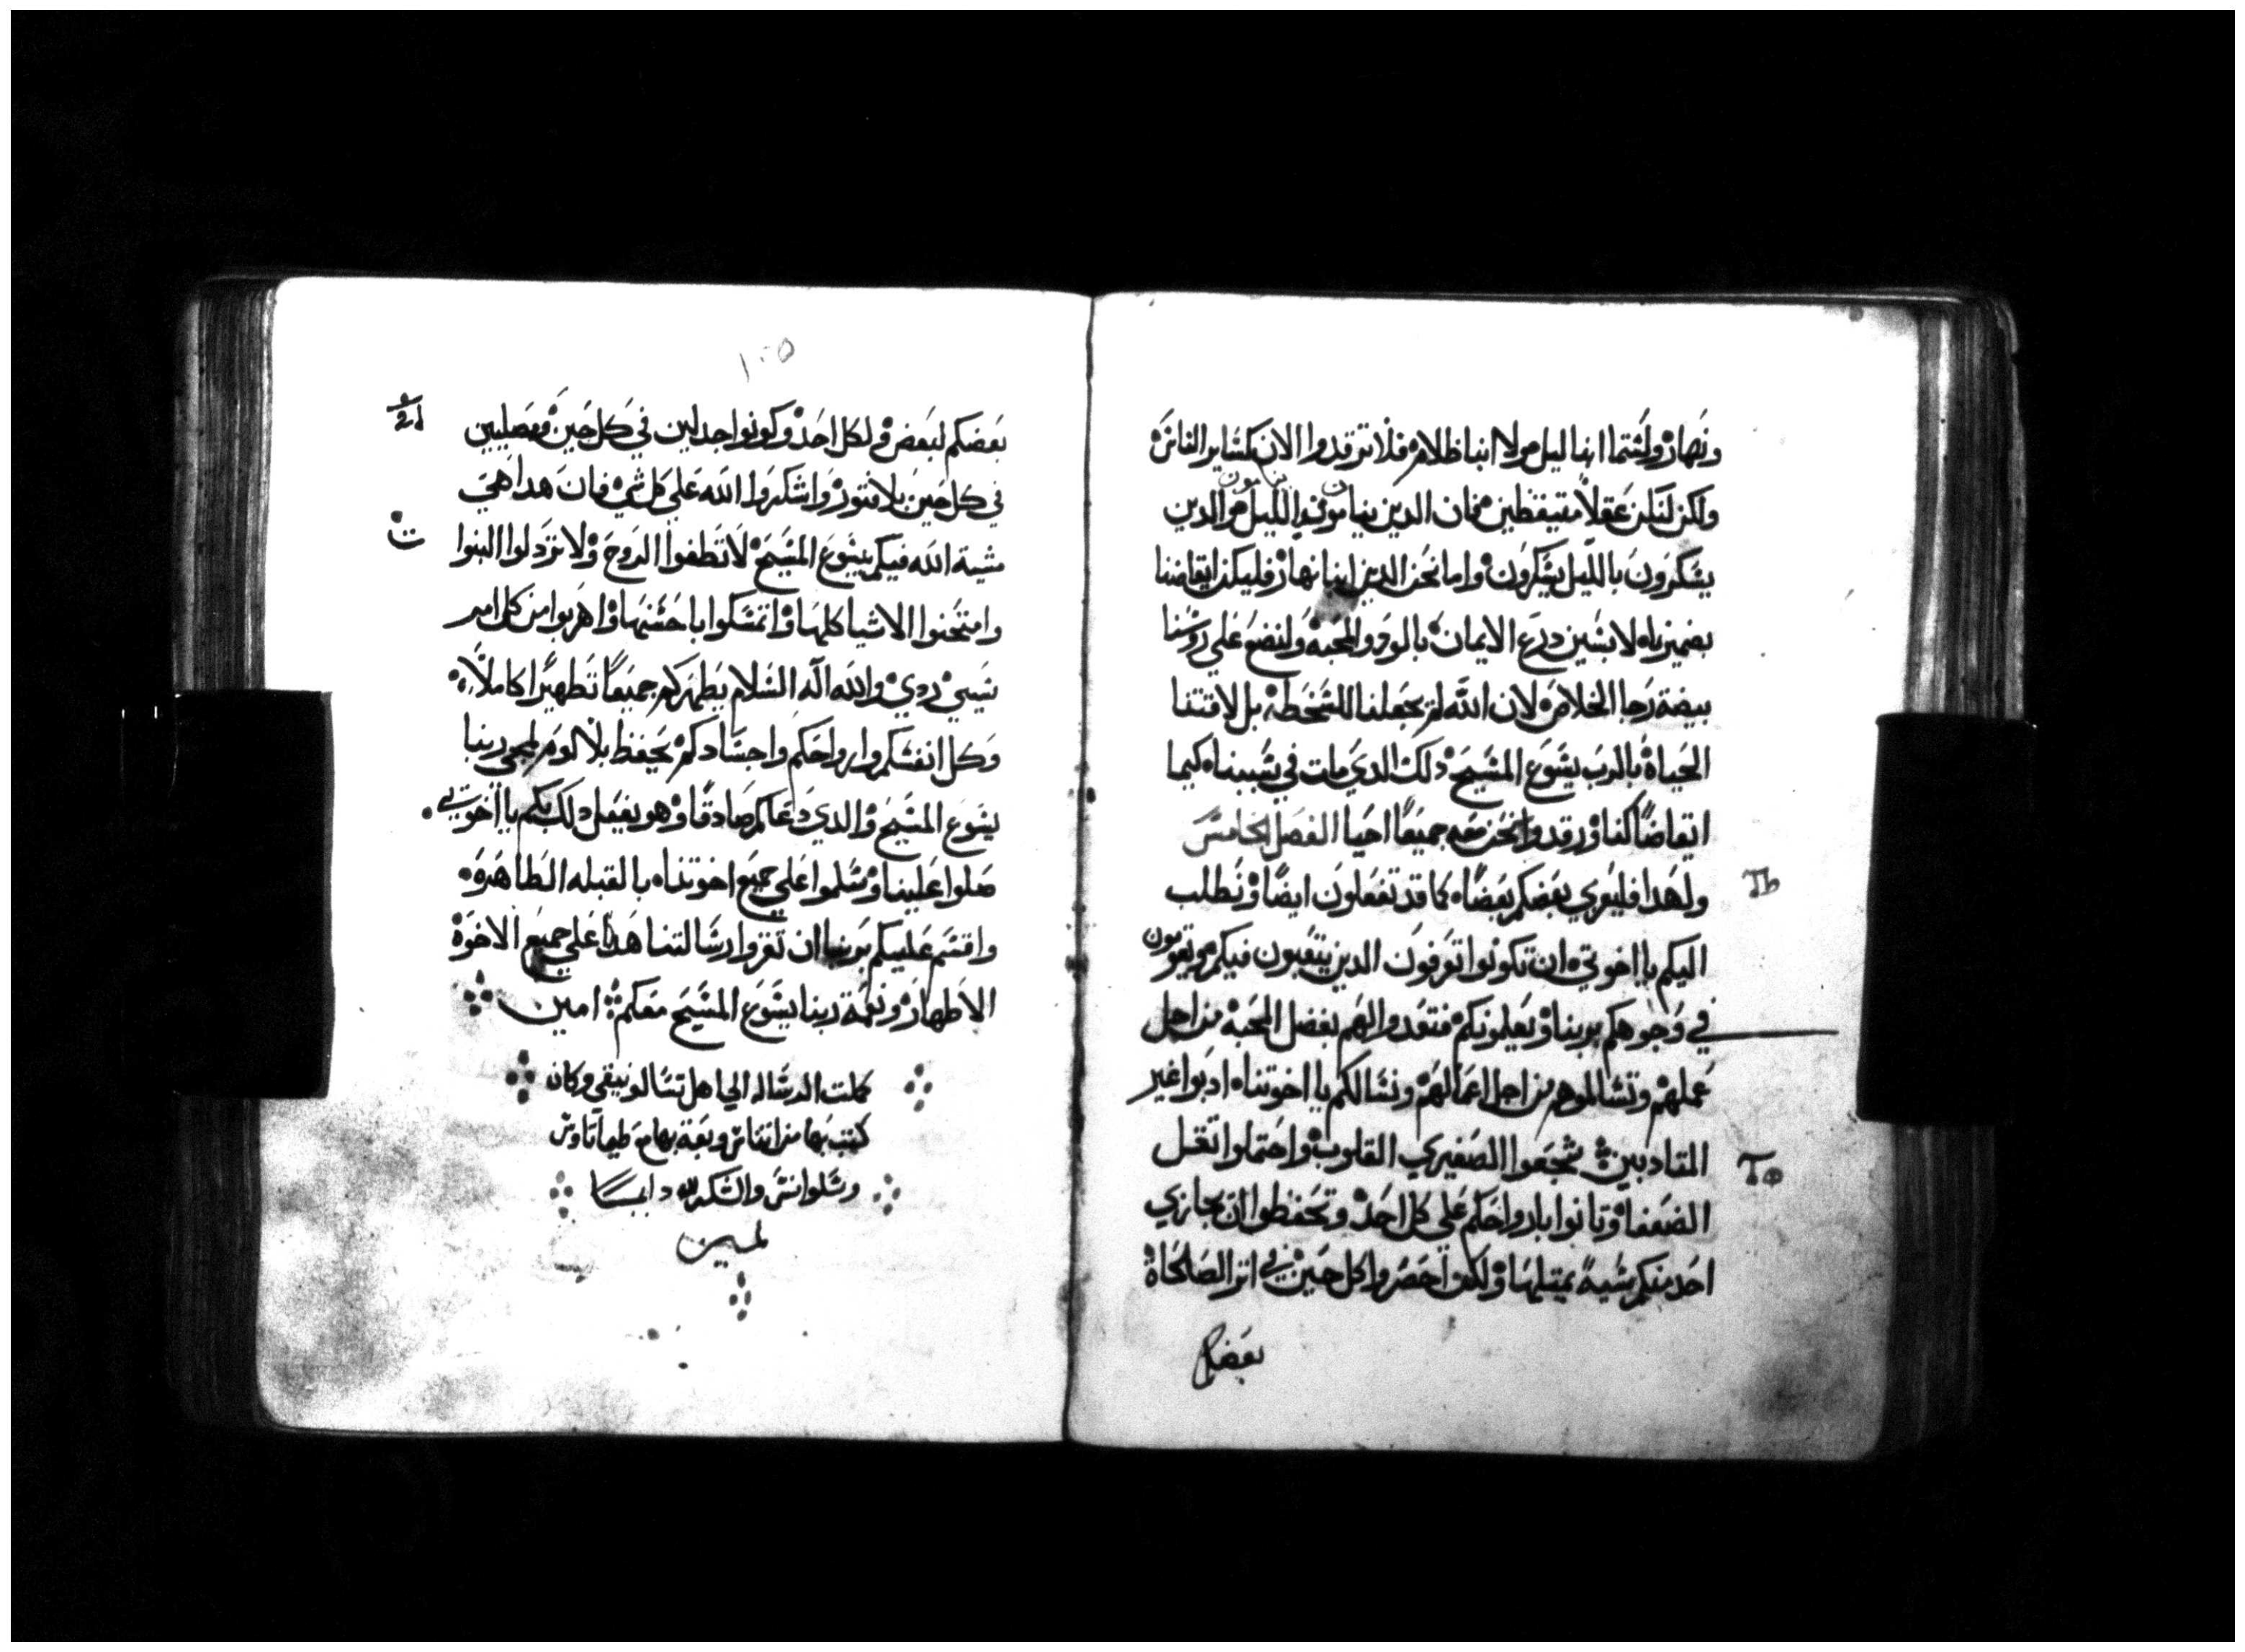 ونهار ولستما ابنا ليل ولا ابنا ظلام فلا نرقدوا الان كساير الناس
ولكن لنكن عقلا متيقظين فان الدين ينامون في الليل هم الدين
يسكرون بالليل يسكرون واما نحن الدين ابنا نهار فليكن ايقاضنا
بضميرناه لابسين درع الايمان بالود والمحبه ولنضع على روسنا
بيضة رجا الخلاص لان الله لم يجعلنا للسخطة بل لاقتنا
الحياة بالرب يسوع المسيح دلك الدي مات في سببناه كيما
ايقاضا كنا ورقدوا نحن معه جميعا احيا الفصل الخامس
ولهدا فليعزي بعضكم بعضاه كما قد تفعلون ايضا ونطلب
اليكم يا اخوتي ان تكونوا تعرفون الدين يتعبون فيكم ويقومون
في وجوهكم بربنا ويعلمونكم فتعدوا لهم بفضل المحبه من اجل
عملهم وتسالموهم من اجل اعمالهم ونسالكم يا اخوتناه ادبوا غير
المتادبين شجعوا الصغيري القلوب واحتملوا تقل
الضعفا وتانوا بارواحكم على كل احد وتحفظوا ان يجازي
احد منكم سية بمتيلها ولكن احضروا كل حين في اتر الصالحاة
بعضكم
١٠٥
بعضكم لبعض ولكل احد وكونوا جدلين في كل حين ومصليين
في كل حين بلا فتور واشكروا الله على كل شي فان هدا هي
مشية الله فيكم بيسوع المسيح لا تطفوا الروح ولا تزدلوا النبوا
وامتحنوا الاشيا كلها واتمسكوا باحسنها واهربوا من كل امر
سيي ردي والله اله السلام يطهركم جميعا تطهيرا كاملا
وكل انفسكم وارواحكم واجسادكم يحفظ بلا لوم لمجي ربنا
يسوع المسيح والدي دعاكم صادقا وهو يفعل دلك بكم يا اخوتي
صلوا علينا وسلموا على جميع اخوتناه بالقبله الطاهره
واقسم عليكم بربنا ان تقروا رسالتنا هدا على جميع الاخوة
الاطهار ونعمة ربنا يسوع المسيح معكم امين
كملت الرساله الي اهل تسالونيقي وكان
كتب بها من اتناس وبعت بها مع طيماتاوس
وسلوانس والشكر لله دايما
امين